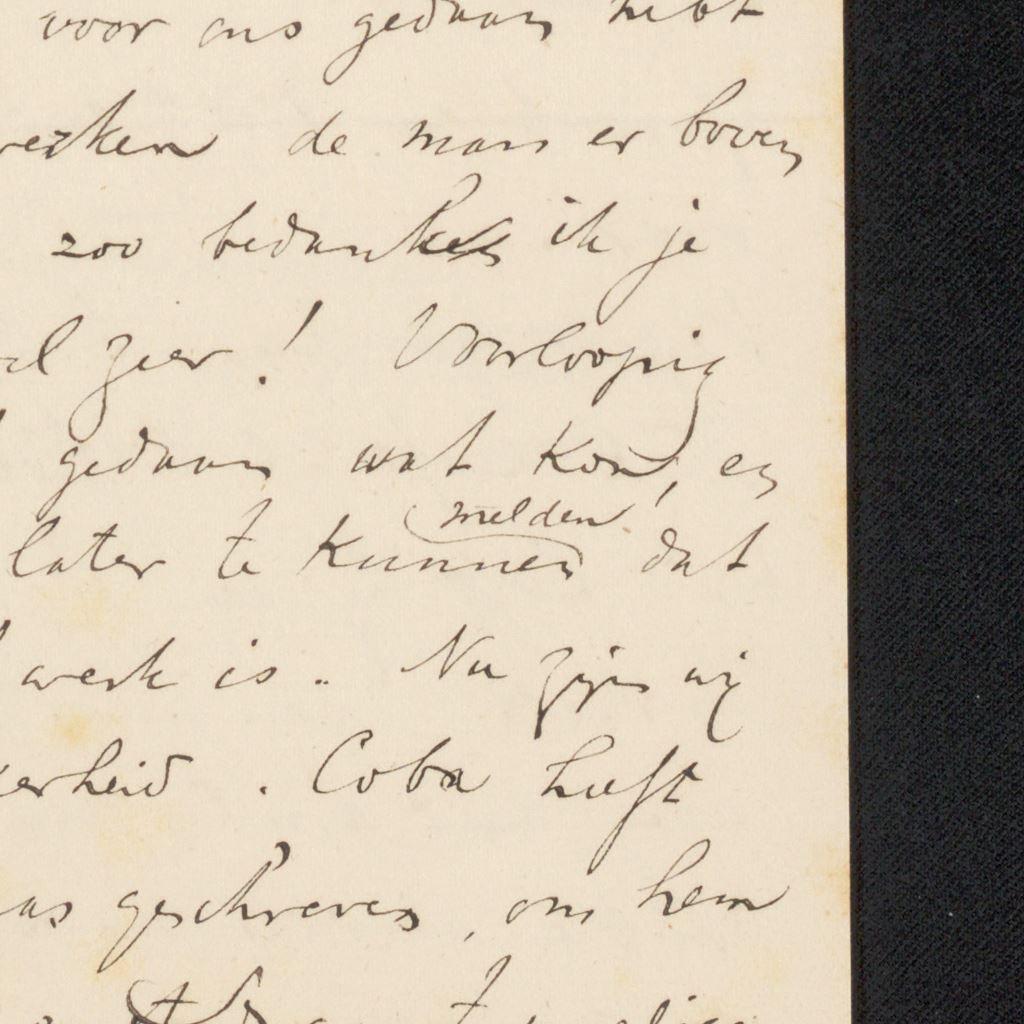 voor ons gedaan hebt
de man er boven
zoo bedank ik je
zeer! Voorloopig
gedaan wat kon, en
melden
later te kunnen dat
werk is. Nu zijn wij
erheid. Coba heeft
geschreven, om hem